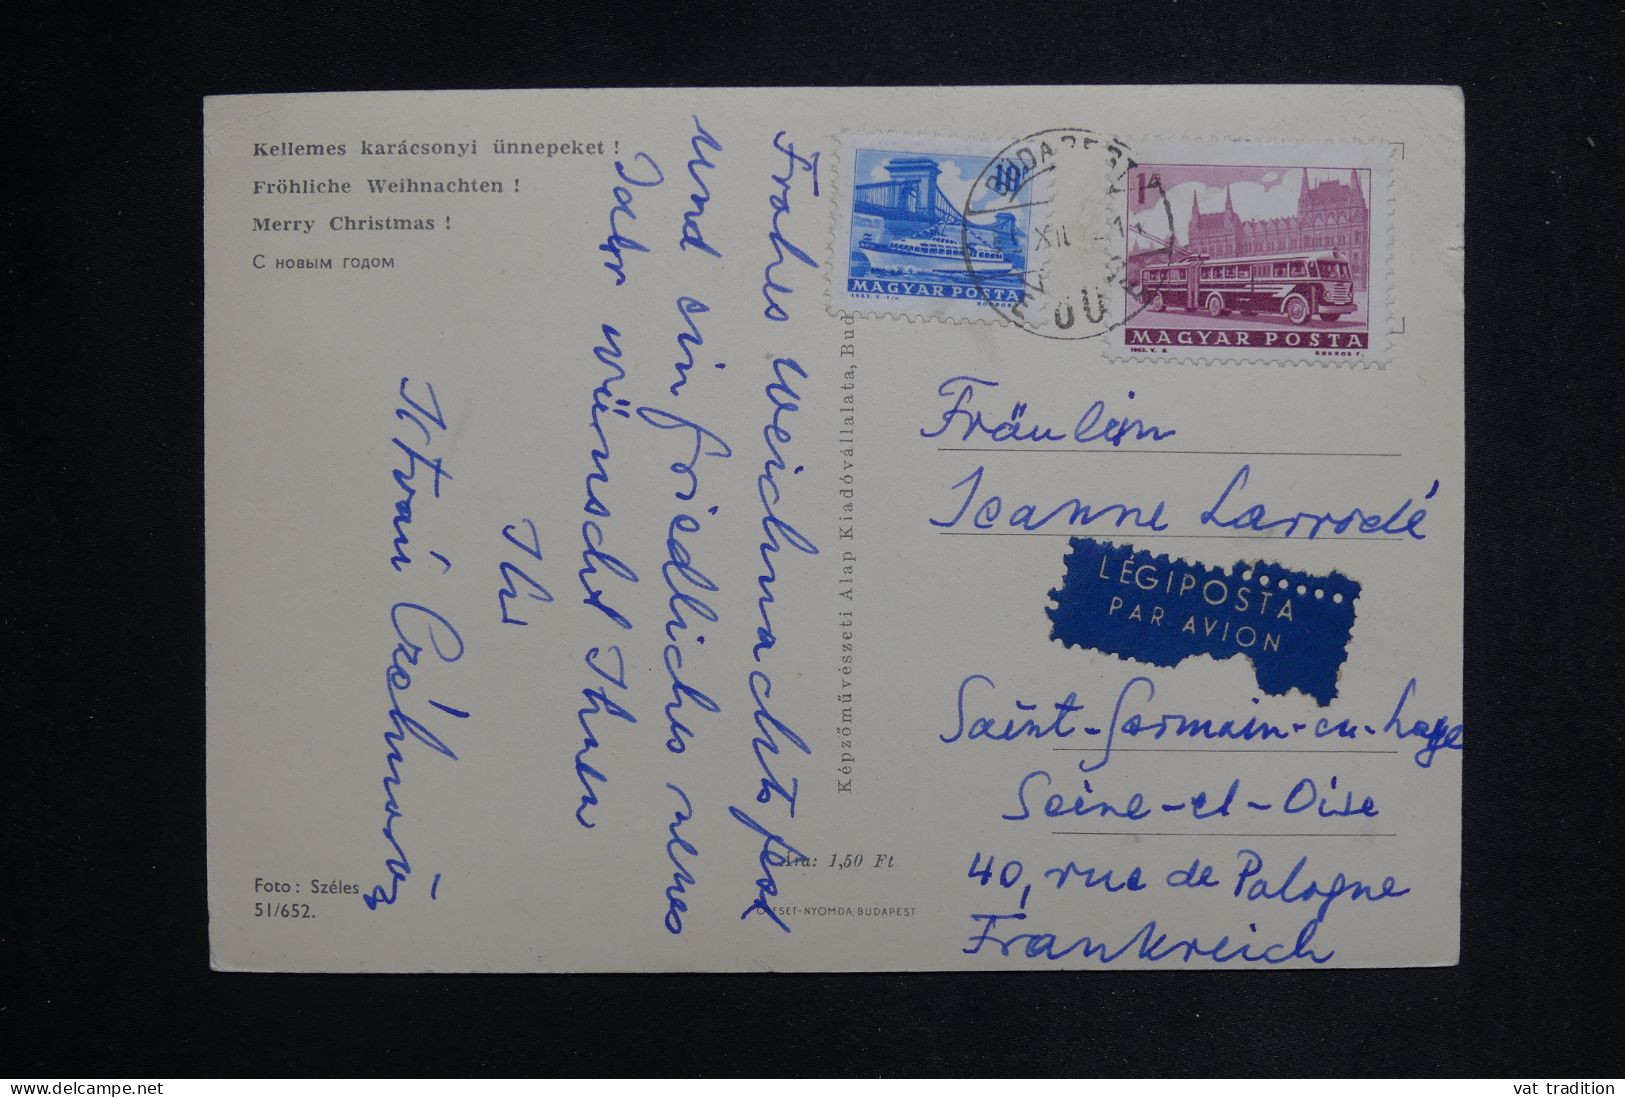 Kellemes karácsonyi ünnepeket !
Fröhliche Weihnachten !
Merry Christmas !
С новым годом
Frohes Weichnachtsfest
und ein friedliches neues
Jahr wünscht Ihnen
Ihr
Foto : Széles
51/652.
Képzőművészeti Alap Kiadóvállalata, Bud
Ára: 1,50 Ft
OFFSET-NYOMDA, BUDAPEST
MAGYAR POSTA
1Ft
MAGYAR POSTA
BUDAPEST
XII
Fräulein
Jeanne Larrodé
LÉGIPOSTA
PAR AVION
Saint-Germain-en-Laye
Seine-et-Oise
40, rue de Pologne
Frankreich
www.delcampe.net
vat tradition